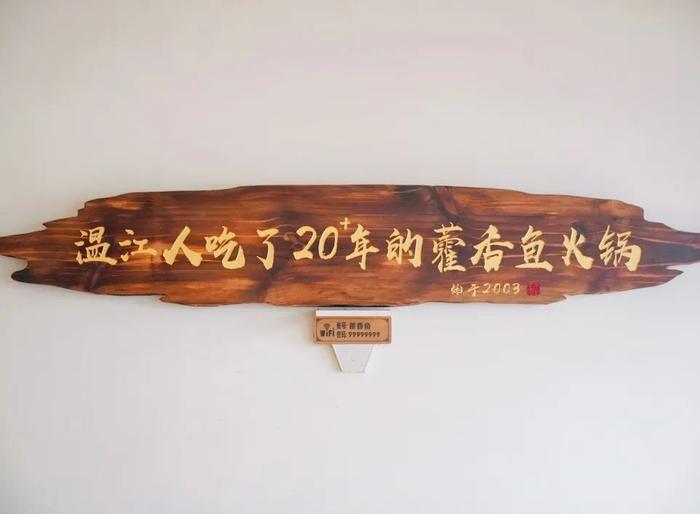 温江人吃了20+年的藿香鱼火锅
始于2003
WiFi
账号:藿香鱼
密码:99999999